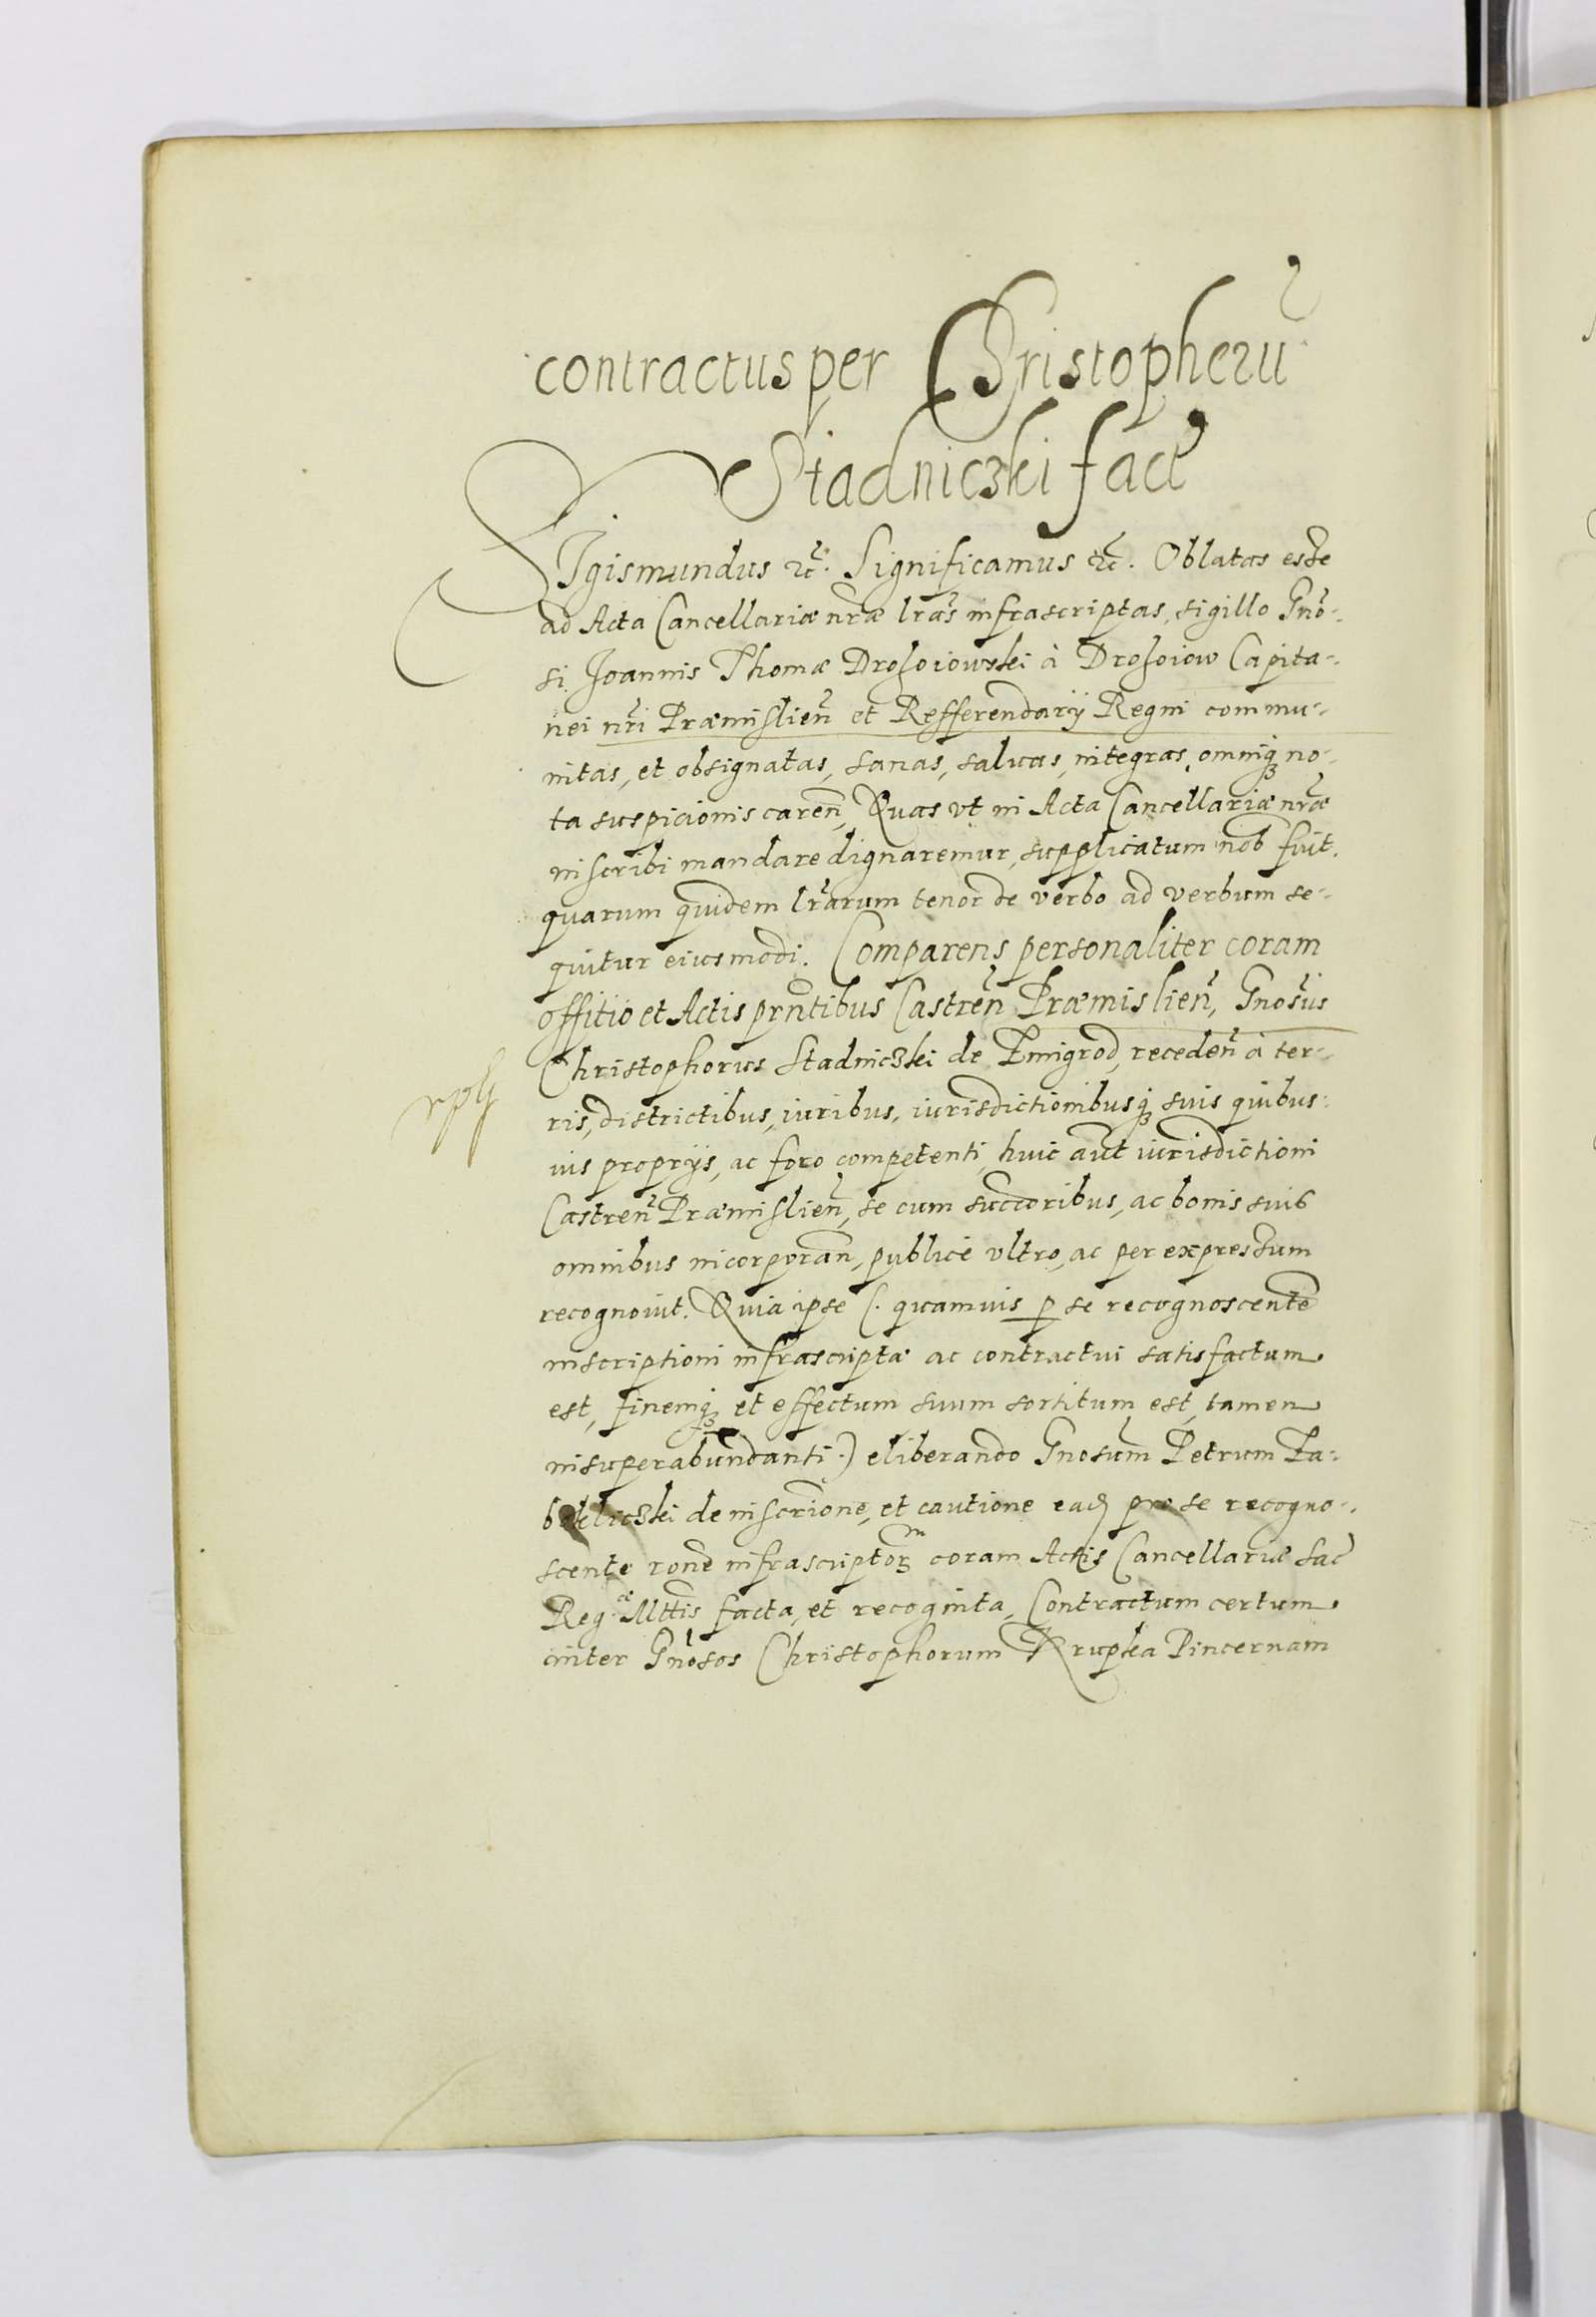 contractus per Christopherũ
Stadniczki fact̃
SIgismundus &c̃. Significamus &c̃. Oblatas esse
ad Acta Cancellariæ nr̃æ lrãs infrascriptas, sigillo Gnõ-
si Joannis Thomæ Drohoiowski à Drohoiow Capita-
nei nr̃i Præmislieñ et Refferendarij Regni commu-
nitas, et obsignatas, sanas, saluas, integras, omniq₃ no-
ta suspicionis careñ, Quas vt in Acta Cancellariæ nr̃æ
inscribi mandare dignaremur, supplicatum nob̃ fuit.
quarum quidem lr̃arum tenor de verbo ad verbum se-
quitur eiusmodi. Comparens personaliter coram
offitio et Actis prñtibus Castreñ Præmislieñ, Gnosũs
Christophorus Stadniczki de Zmigrod, recedeñ à ter-
ris, districtibus, iuribus, iurisdictionibusq₃ suis quibus-
uis proprijs, ac foro competenti, huic aũt iurisdictioni
Castreñ Præmislieñ, se cum succ̃oribus, ac bonis suis
omnibus incorporañ, publicè vltro, ac per expressum
recognouit. Quia ipse (. quamuis p̱ se recognoscentẽ
inscriptioni infrascriptæ ac contractui satisfactum
est, finemq₃ et effectum suum sortitum est, tamen
in superabundanti .) eliberando Gnosũm Petrum Za-
bokliczki de inscr̃ione, et cautione ead̃ pro se recogno-
scente rõne infrascriptor̃ coram Actis Cancellariæ Sac̃
Reg.æ Mttis facta, et recognita, Contractum certum
inter Gñosos Christophorum Krupka Pincernam